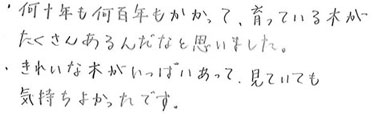 ・何十年も何百年もかかって、育っている木が
たくさんあるんだなと思いました。
・きれいな木がいっぱいあって、見ていても
気持ちよかったです。